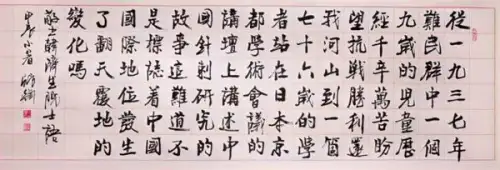 從一九三七年
難民群中一個
九歲的兒童歷
經千辛萬苦盼
望抗戰勝利還
我河山到一箇
七十六歲的學
者站在日本京
都學術會議的
講壇上講述中
國針刺研究的
故事這難道不
是標誌着中國
國際地位發生
了翻天覆地的
變化嗎
敬書韓濟生院士語
小暑